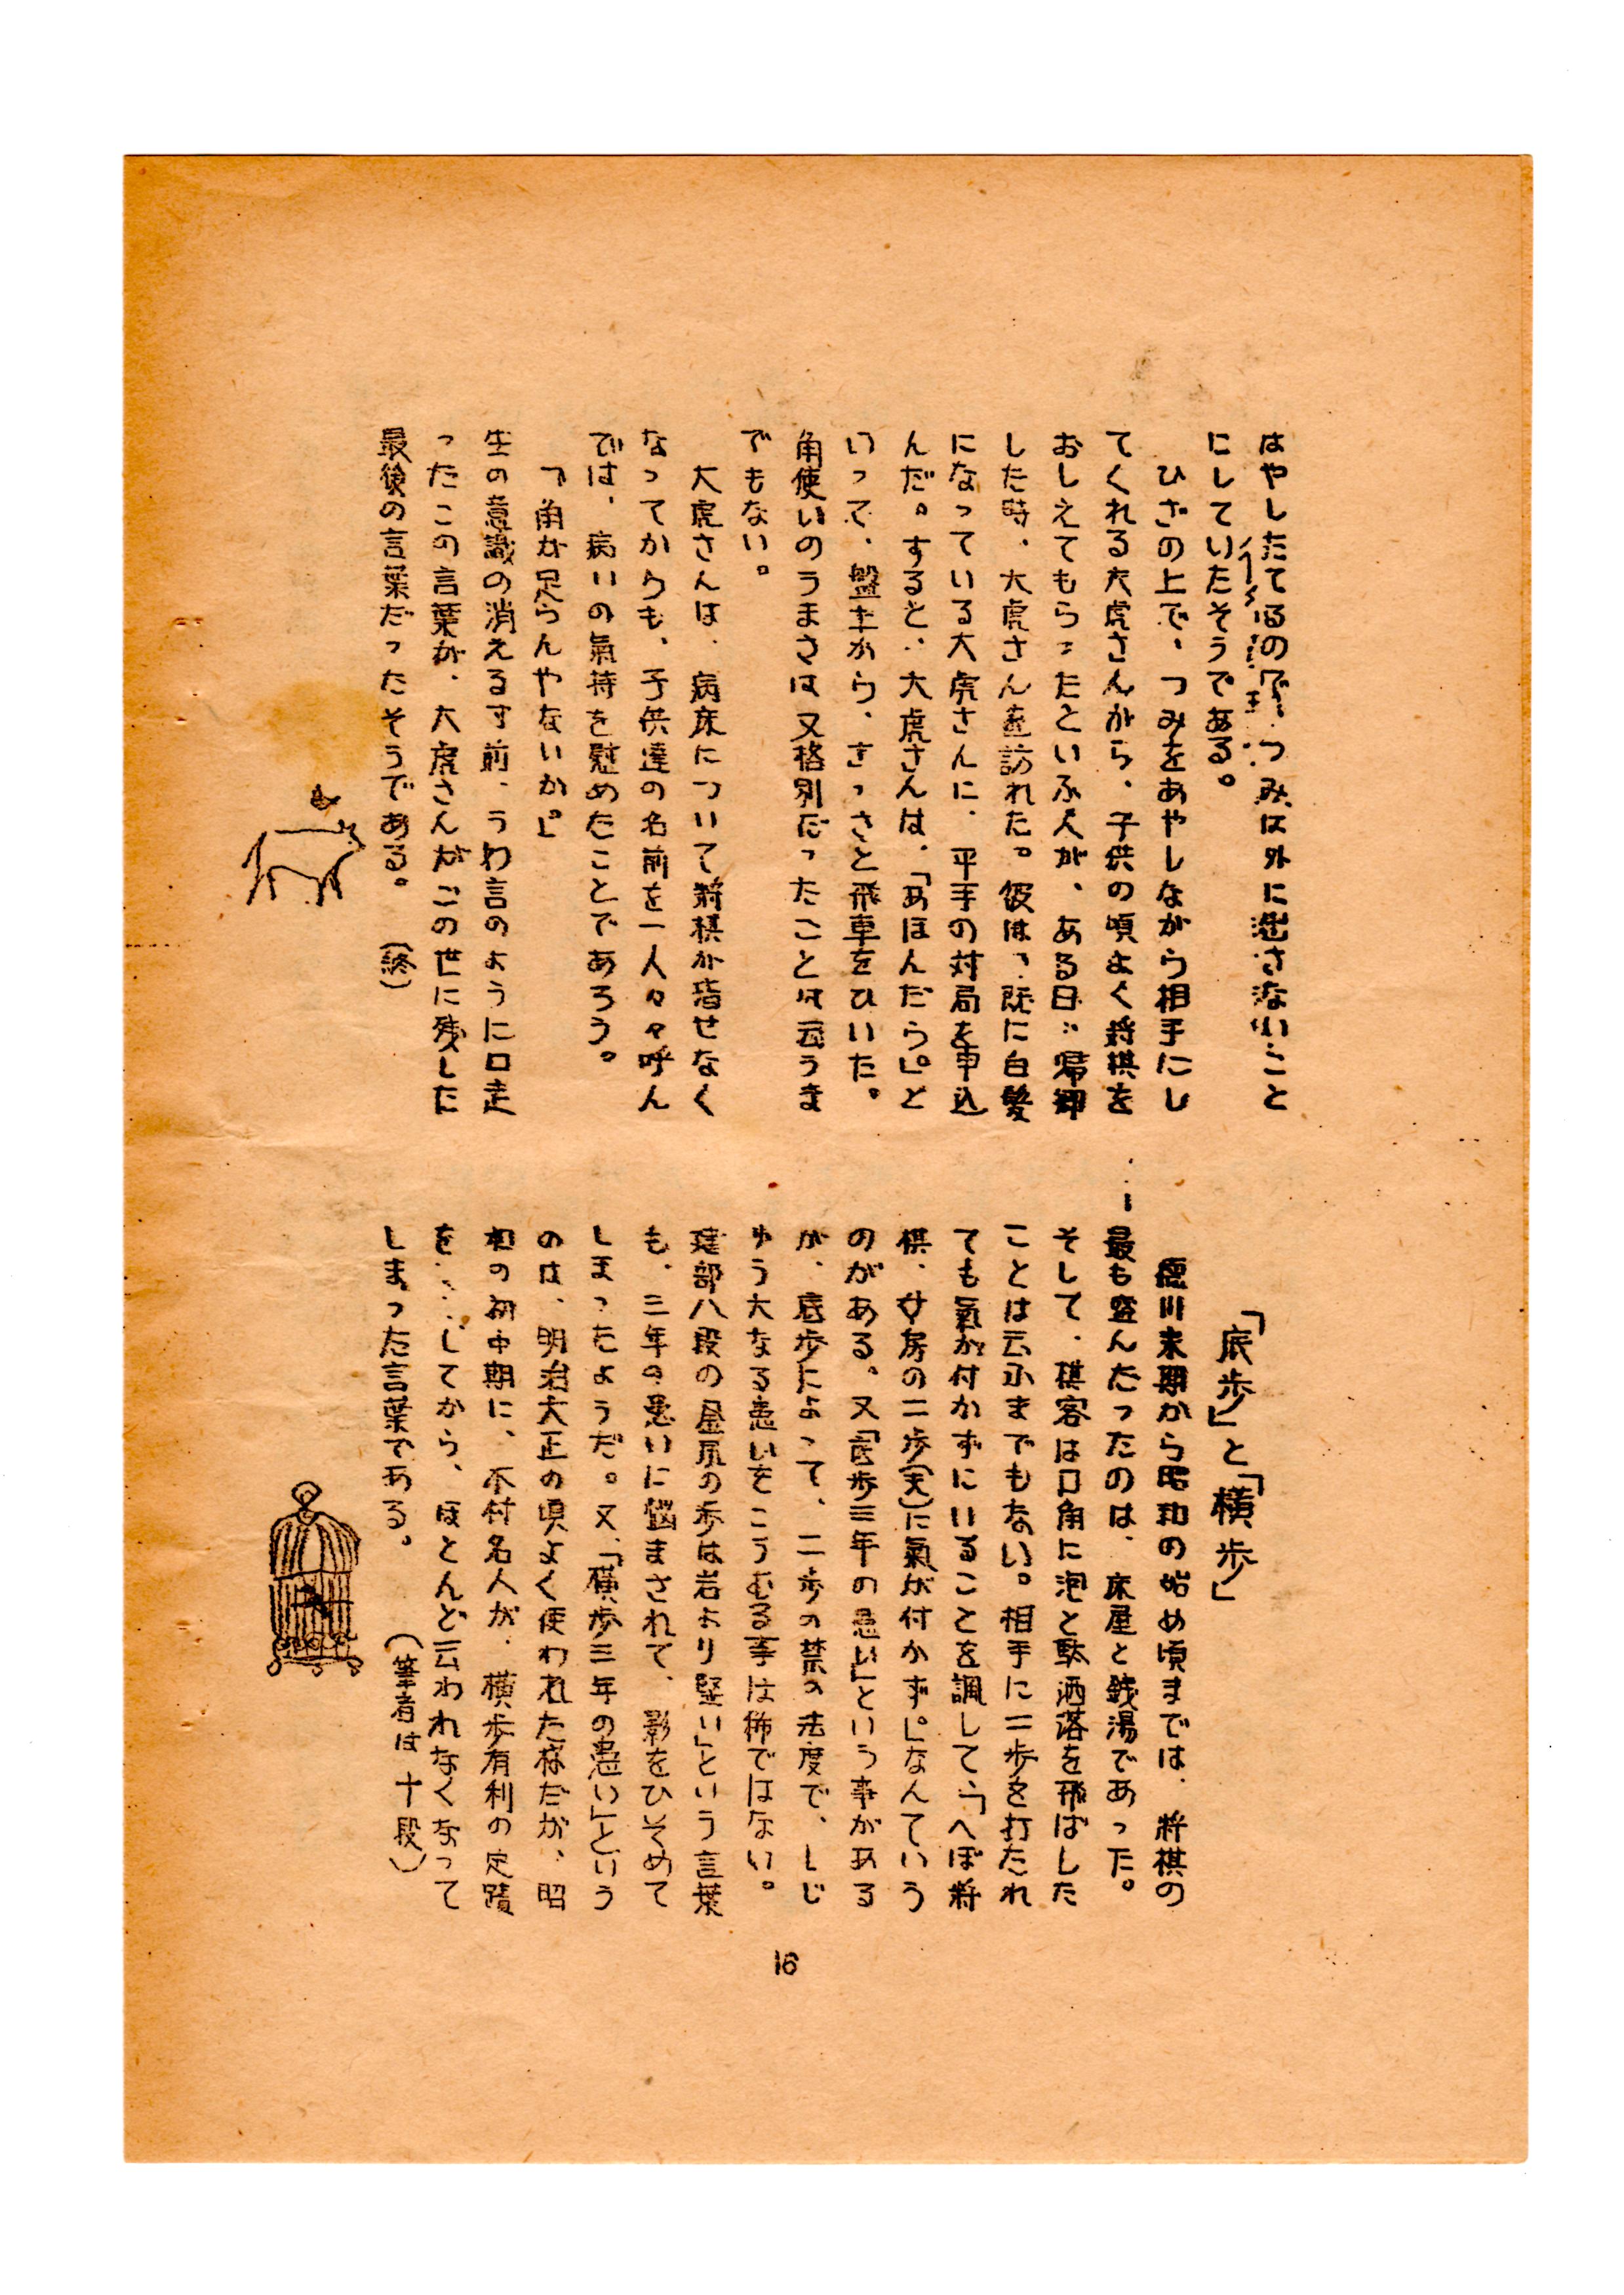 はやしたてるので、つみは外に逃さないこと
にしていたそうである。
ひざの上で、つみをあやしながら相手にし
てくれる大虎さんから、子供の頃よく将棋を
おしえてもらったといふ人が、ある日、帰郷
した時、大虎さんを訪れた。彼は、既に白髪
になっている大虎さんに、平手の対局を申込
んだ。すると、大虎さんは、「あほんだら。」と
いって、盤上から、さっさと飛車をひいた。
角使いのうまさは又格別だったことは云うま
でもない。
大虎さんは、病床について将棋が指せなく
なってからも、子供達の名前を一人々々呼ん
では、病いの氣持を慰めたことであろう。
「角が足らんやないか。」
生の意識の消えるす前、うわ言のように口走
ったこの言葉が、大虎さんがこの世に残した
最後の言葉だったそうである。 (終)
「底歩」と「横歩」
徳川末期から昭和の始め頃までは、将棋の
最も盛んだったのは、床屋と銭湯であった。
そして、棋客は口角に泡と駄洒落を飛ばした
ことは云ふまでもない。相手に二歩を打たれ
ても氣が付かずにいることを諷して、「へぼ将
棋、女房の二歩(夫)に氣が付かず。」なんていう
のがある。又「底歩三年の患い」という事がある
が、底歩によって、二歩の禁の法度で、しじ
ゅう大なる患いをこうむる事は稀ではない。
建部八段の屋風の歩は岩より堅い」という言葉
も、三年の患いに悩まされて、影をひそめて
しまったようだ。又、「横歩三年の患い」という
のは、明治大正の頃よく使われた様だが、昭
和の初中期に、木村名人が、横歩有利の定蹟
を してから、ほとんど云われなくなって
しまった言葉である。
(筆者は十段)
16